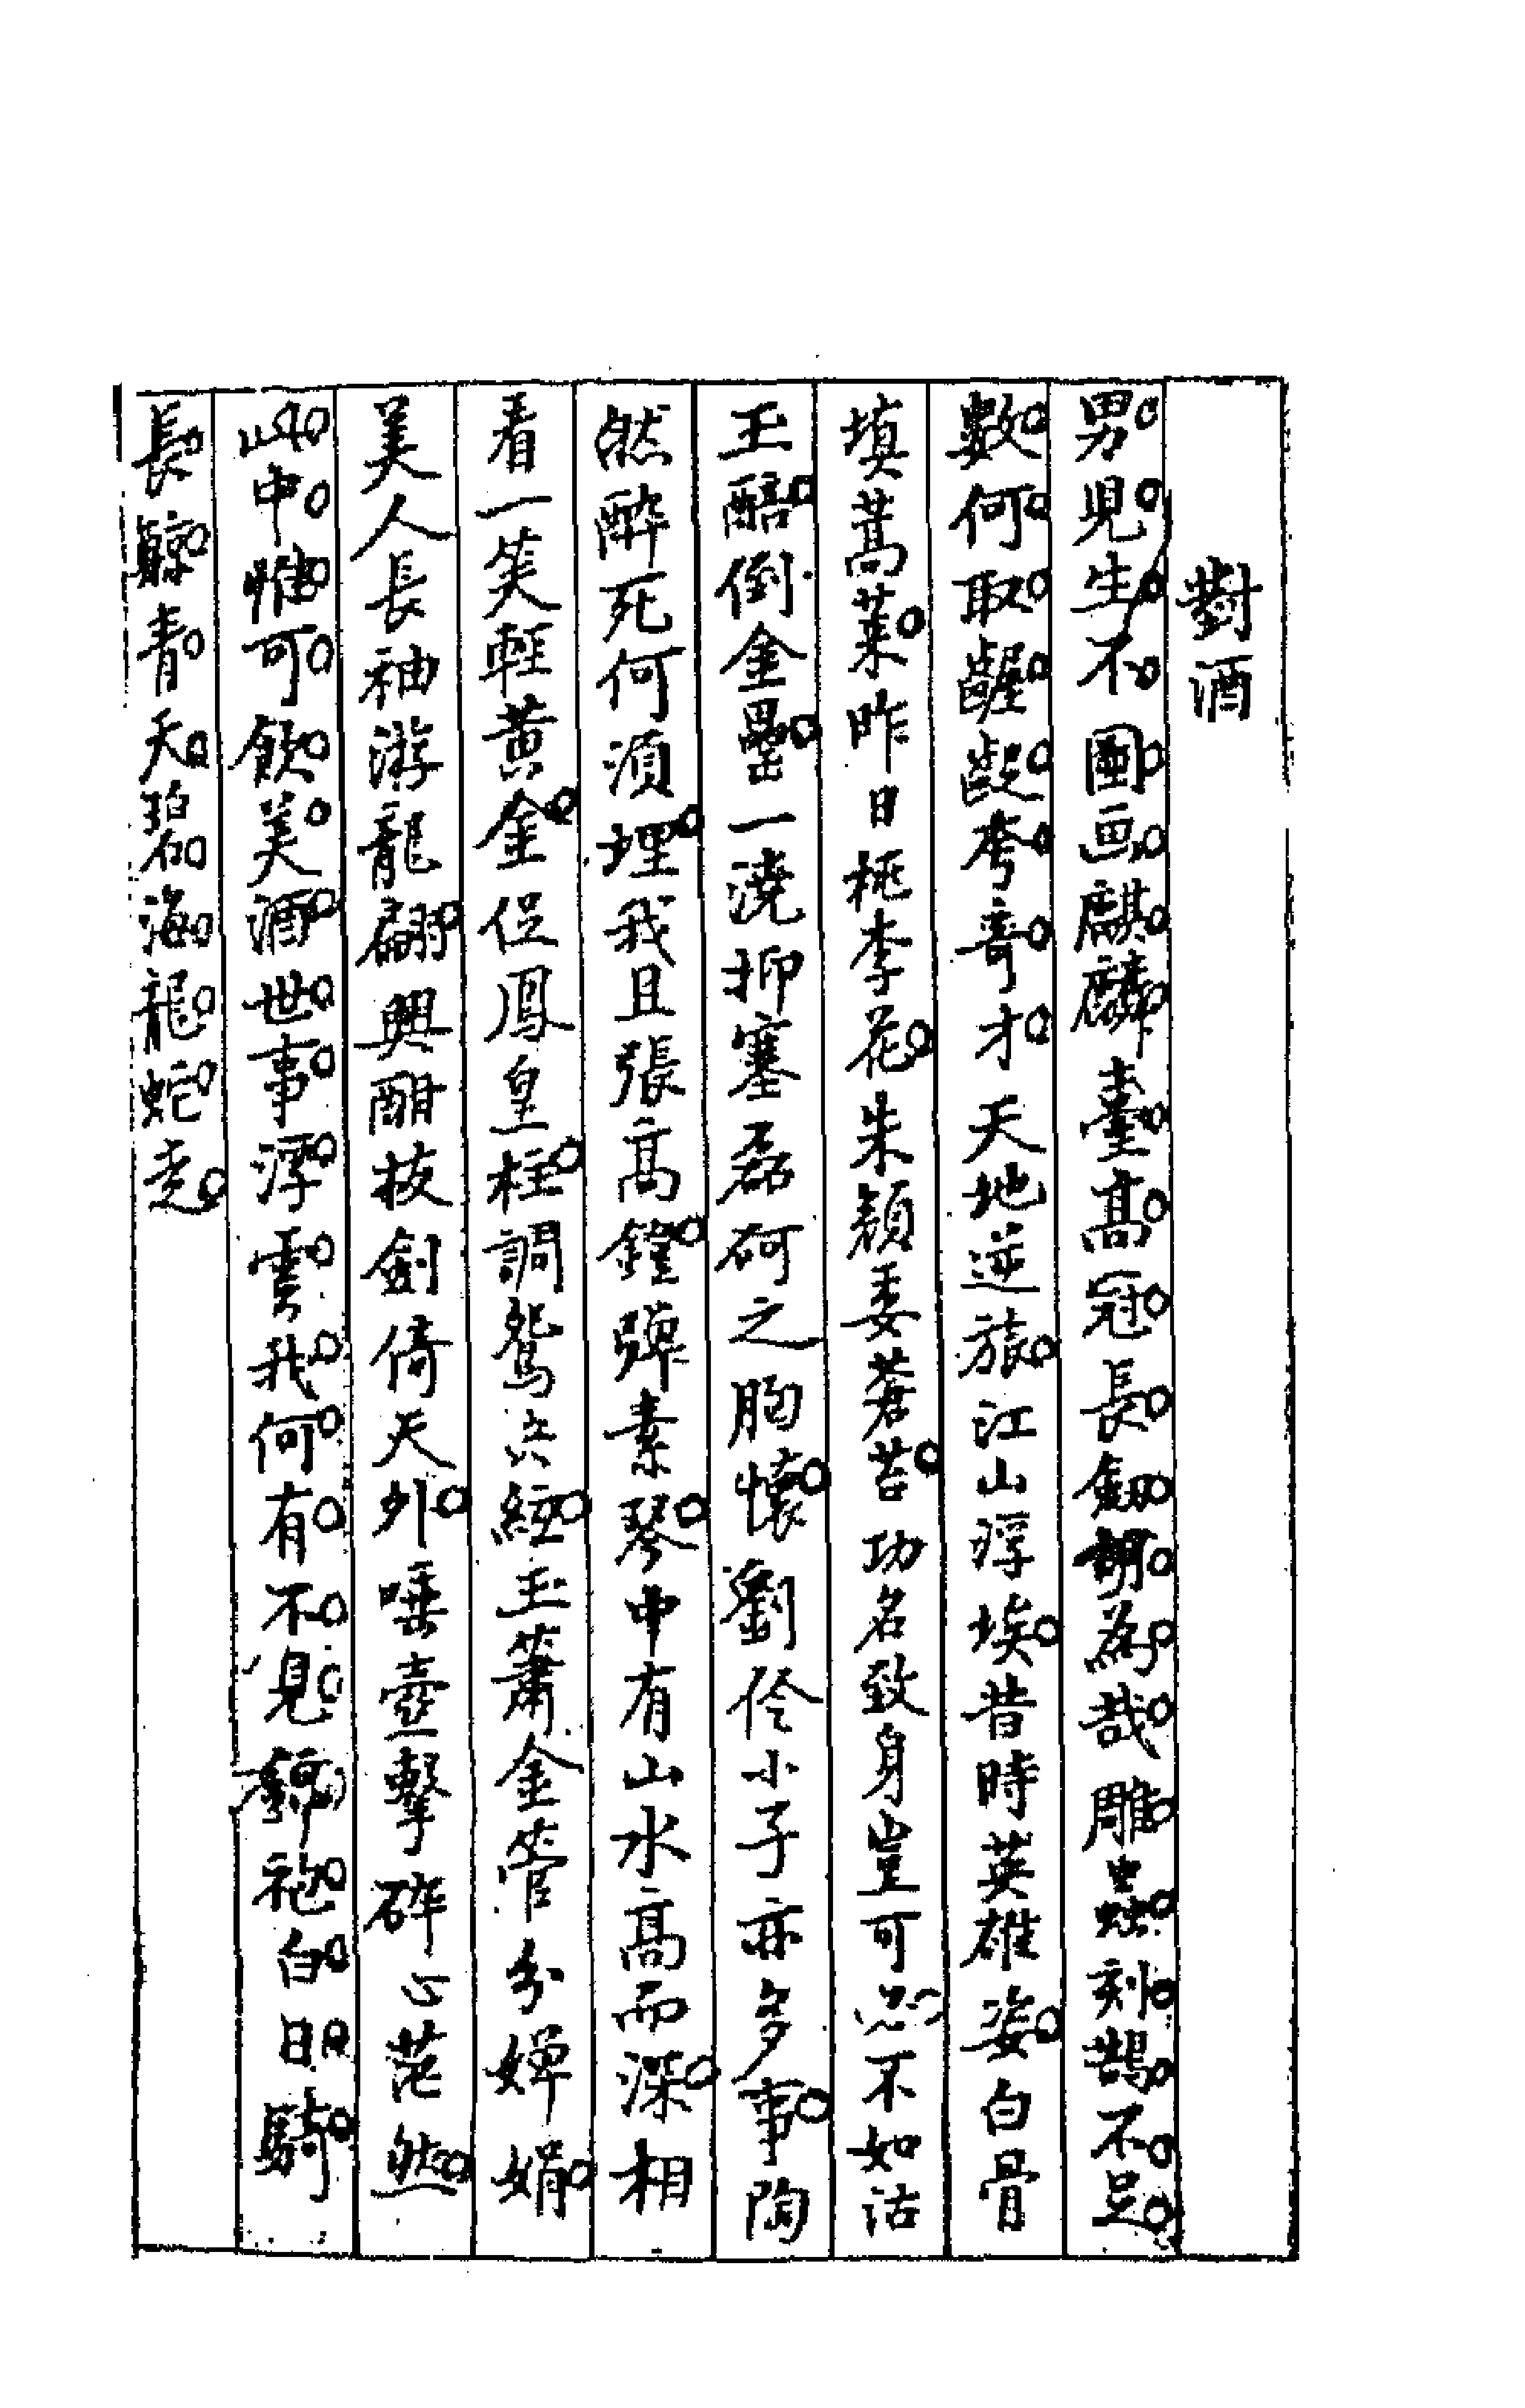 對酒
男兒生不圖画麒麟臺高冠長劔胡為哉雕蟲刻鵠不足
數何取齷齪夸竒才天地逆旅江山浮埃昔時英雄姿白骨
填蒿萊昨日桃李花朱顏委蒼苔功名致身豈可必不如沽
玉醅倒金罍一澆抑塞磊砢之胸懷劉伶小子亦多事陶
然醉死何須埋我且張高鐘彈素琴中有山水高而深相
看一笑輕黃金促鳳皇柱調鴛央絃玉簫金管分嬋娟
美人長袖游龍翩興酣拔劍倚天外唾壺擊碎心茫然
山中惟可飲美酒世事浮雲我何有不見錦袍白日騎
長鯨青天碧海龍蛇走